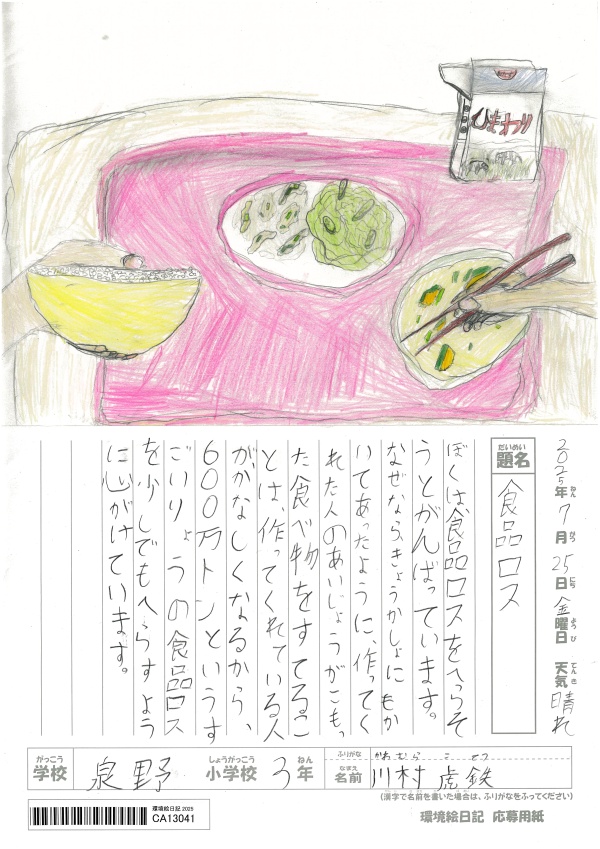 ひまわり
2025年7月25日金曜日 天気晴れ
ねん がつ にち ようび てんき
だいめい
題名
食品ロス
ぼくは食品ロスをへらそ
うとがんばっています。
なぜなら、きょうかしょにもか
いてあったように、作ってく
れた人のあいじょうがこもっ
た食べ物をすてるこ
とは、作ってくれている人
がかなしくなるから、
600万トンというす
ごいりょうの食品ロス
を少しでもへらすよう
に心がけています。
がっこう しょうがっこう ねん
学校 泉野 小学校 3年
ふりがな かわむら こ てつ
なまえ
名前 川村 虎鉄
(漢字で名前を書いた場合は、ふりがなをふってください)
環境絵日記 2025
CA13041
環境絵日記 応募用紙